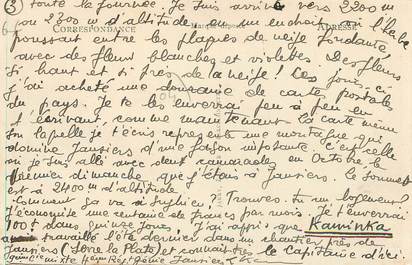 (3) toute la journée. Je suis arrivé vers 2200 m
ou 2300 m d'altitude en un endroit où l'herbe
CORRESPONDANCE
ADRESSE
poussait entre les plaques de neige fondante,
avec des fleurs blanches et violettes. Des fleurs
si haut et si près de la neige! Ces jours ci
j'ai acheté une douzaine de carte postale
du pays. Je te les enverrai peu à peu en
t'écrivant, comme maintenant la carte même
sur laquelle je t'écris represente une montagne qui
domine Jausiers d'une façon imposante. C'est celle
où je suis allé avec dent camarades en Octobre le
premier dimanche que j'étais à Jausiers. Le sommet
est à 2400 m d'altitude
Comment ça va à Enghien? Trouves-tu un logement?
J'économise une centaine de francs par mois. Je t'enverrai
100f dans quinze jours. J'ai appris que Kaminka
a travaillé l'été dernier dans un chantier près de
Jausiers (Serre la Plate) et connaissait le Capitaine d'ici.
Jausiers